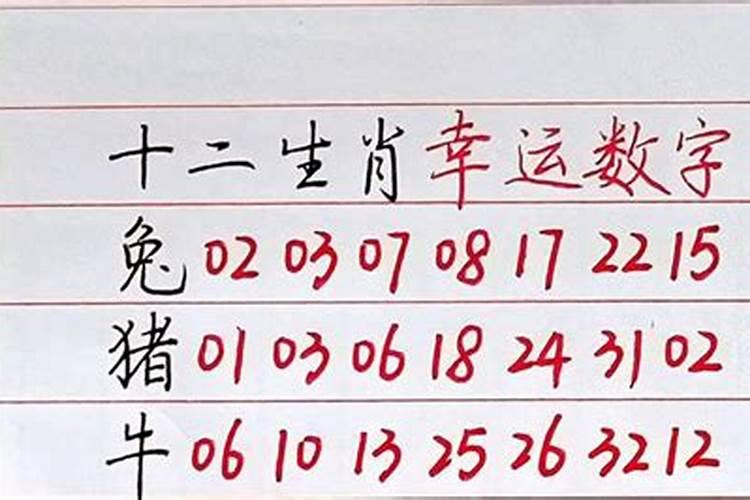 十二生肖幸运数字
兔 02 03 07 08 17 22 15
猪 01 03 06 18 24 31 02
牛 06 10 13 25 26 32 12